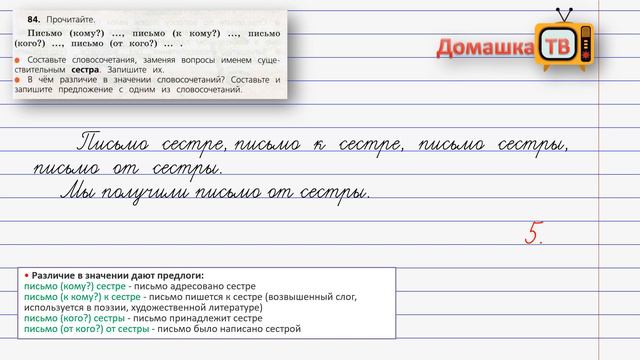 84. Прочитайте.
Письмо (кому?) ..., письмо (к кому?) ..., письмо
(кого?) ..., письмо (от кого?) ... .
● Составьте словосочетания, заменяя вопросы именем суще-
ствительным сестра. Запишите их.
● В чём различие в значении словосочетаний? Составьте и
запишите предложение с одним из словосочетаний.
Домашка ТВ
Письмо сестре, письмо к сестре, письмо сестры,
письмо от сестры.
Мы получили письмо от сестры.
5.
• Различие в значении дают предлоги:
письмо (кому?) сестре - письмо адресовано сестре
письмо (к кому?) к сестре - письмо пишется к сестре (возвышенный слог,
используется в поэзии, художественной литературе)
письмо (кого?) сестры - письмо принадлежит сестре
письмо (от кого?) от сестры - письмо было написано сестрой